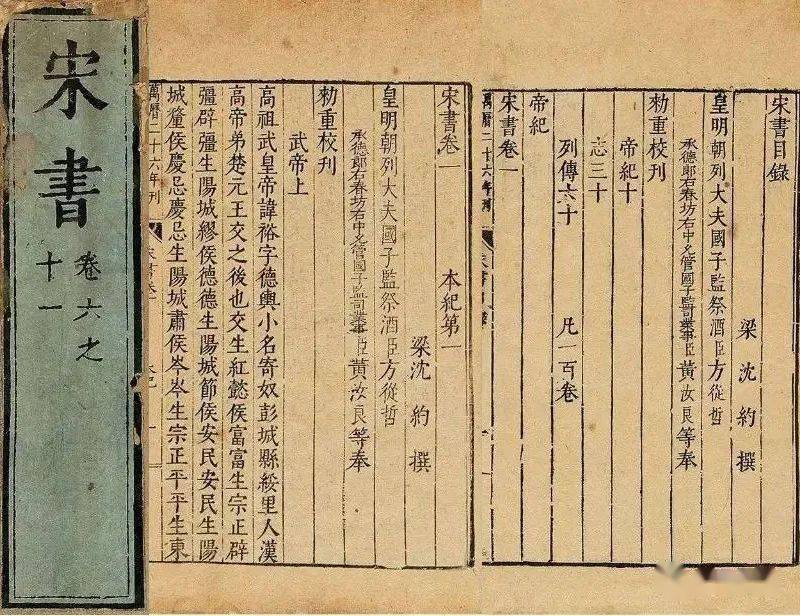 宋書
卷六之
十一
宋書目錄
梁沈約撰
皇明朝列大夫國子監祭酒臣方從哲
承德郎右春坊右中允管國子監司業事臣黃汝良等奉
勑重校刊
帝紀十
志三十
列傳六十
凡一百卷
帝紀
宋書卷一
萬曆二十六年刊
宋書卷一
本紀第一
梁沈約撰
皇明朝列大夫國子監祭酒臣方從哲
承德郎右春坊右中允管國子監司業事臣黃汝良等奉
勑重校刊
武帝上
高祖武皇帝諱裕字德輿小名寄奴彭城縣綏里人漢
高帝弟楚元王交之後也交生紅懿侯富富生宗正辟
彊辟彊生陽城繆侯德德生陽城節侯安民安民生陽
城釐侯慶忌慶忌生陽城肅侯岑岑生宗正平平生東
萬曆二十六年刊
宋書卷一